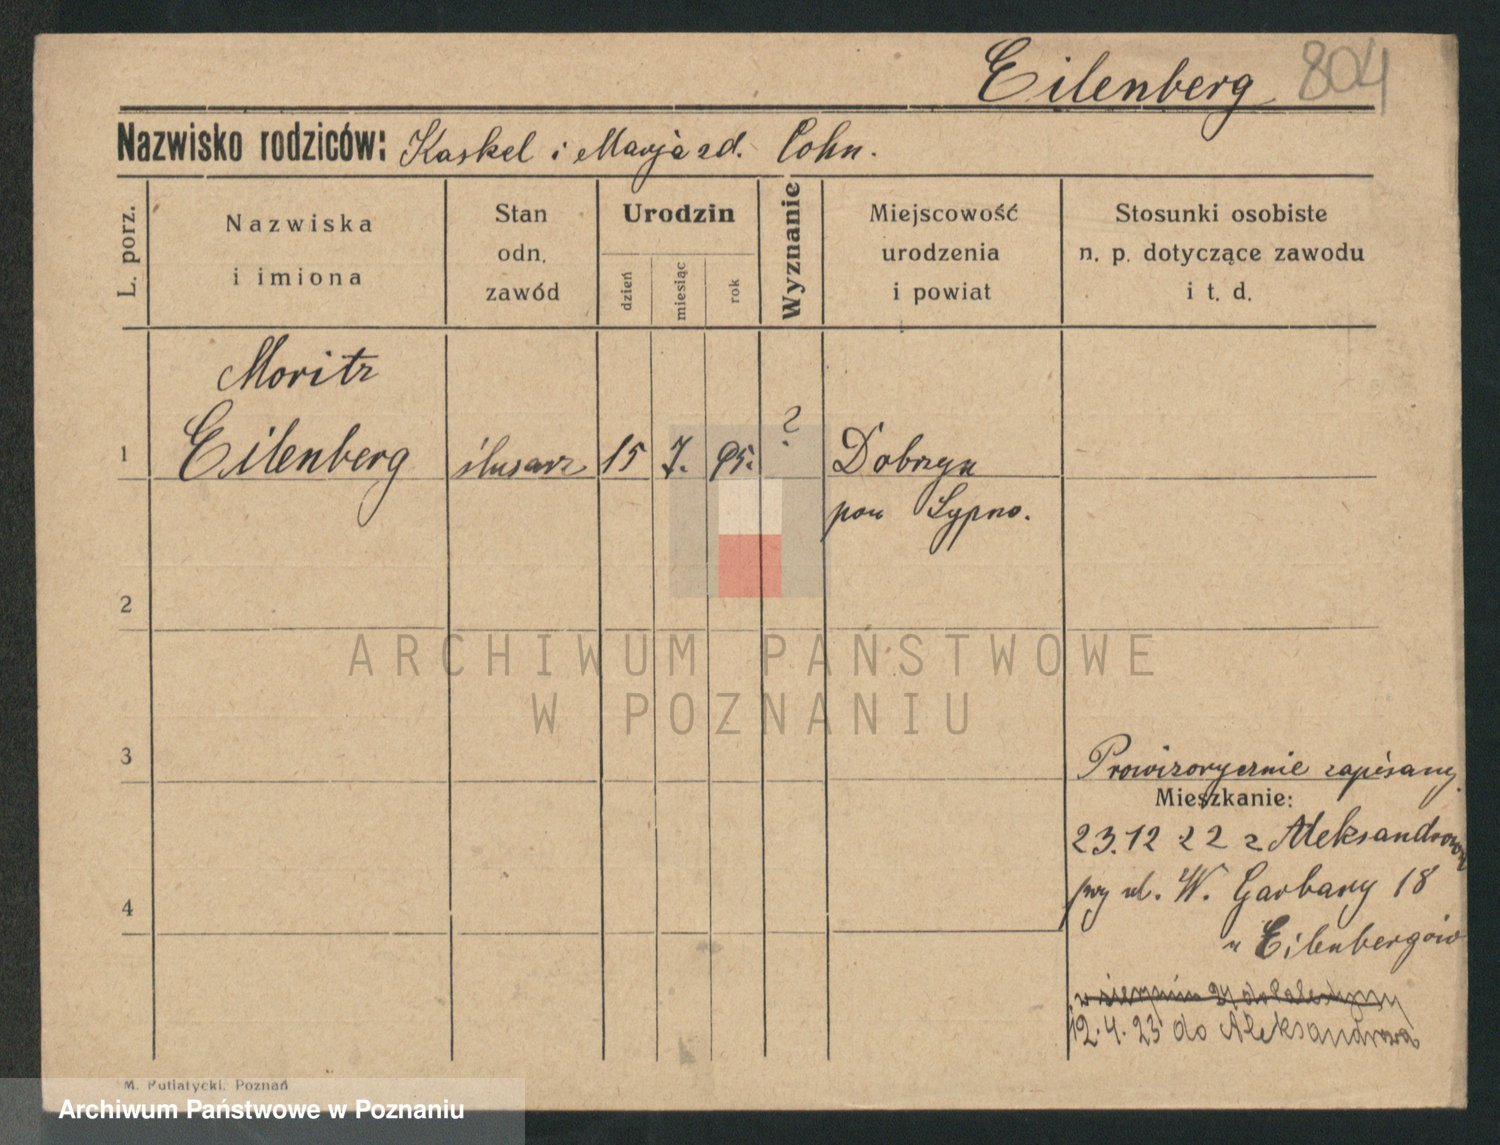 Eilenberg 804
Nazwisko rodziców: Kaskel i Marja zd. Cohn.
L. porz.
Nazwiska
i imiona
Stan
odn.
zawód
Urodzin
dzień
miesiąc
rok
Wyznanie
Miejscowość
urodzenia
i powiat
Stosunki osobiste
n. p. dotyczące zawodu
i t. d.
Moritz
1 Eilenberg ślusarz 15 7. 95. ? Dobrzyn
pow Lypno.
2
ARCHIWUM PAŃSTWOWE
W POZNANIU
3
Prowizorycznie zapisany
Mieszkanie:
23.12 22 z Aleksandrowa
przy ul. W. Garbary 18
u Eilenbergów
4
w sierpniu 24 do Palestyny
12.4.25 do Aleksandrowa
M. Putiatycki, Poznań
Archiwum Państwowe w Poznaniu